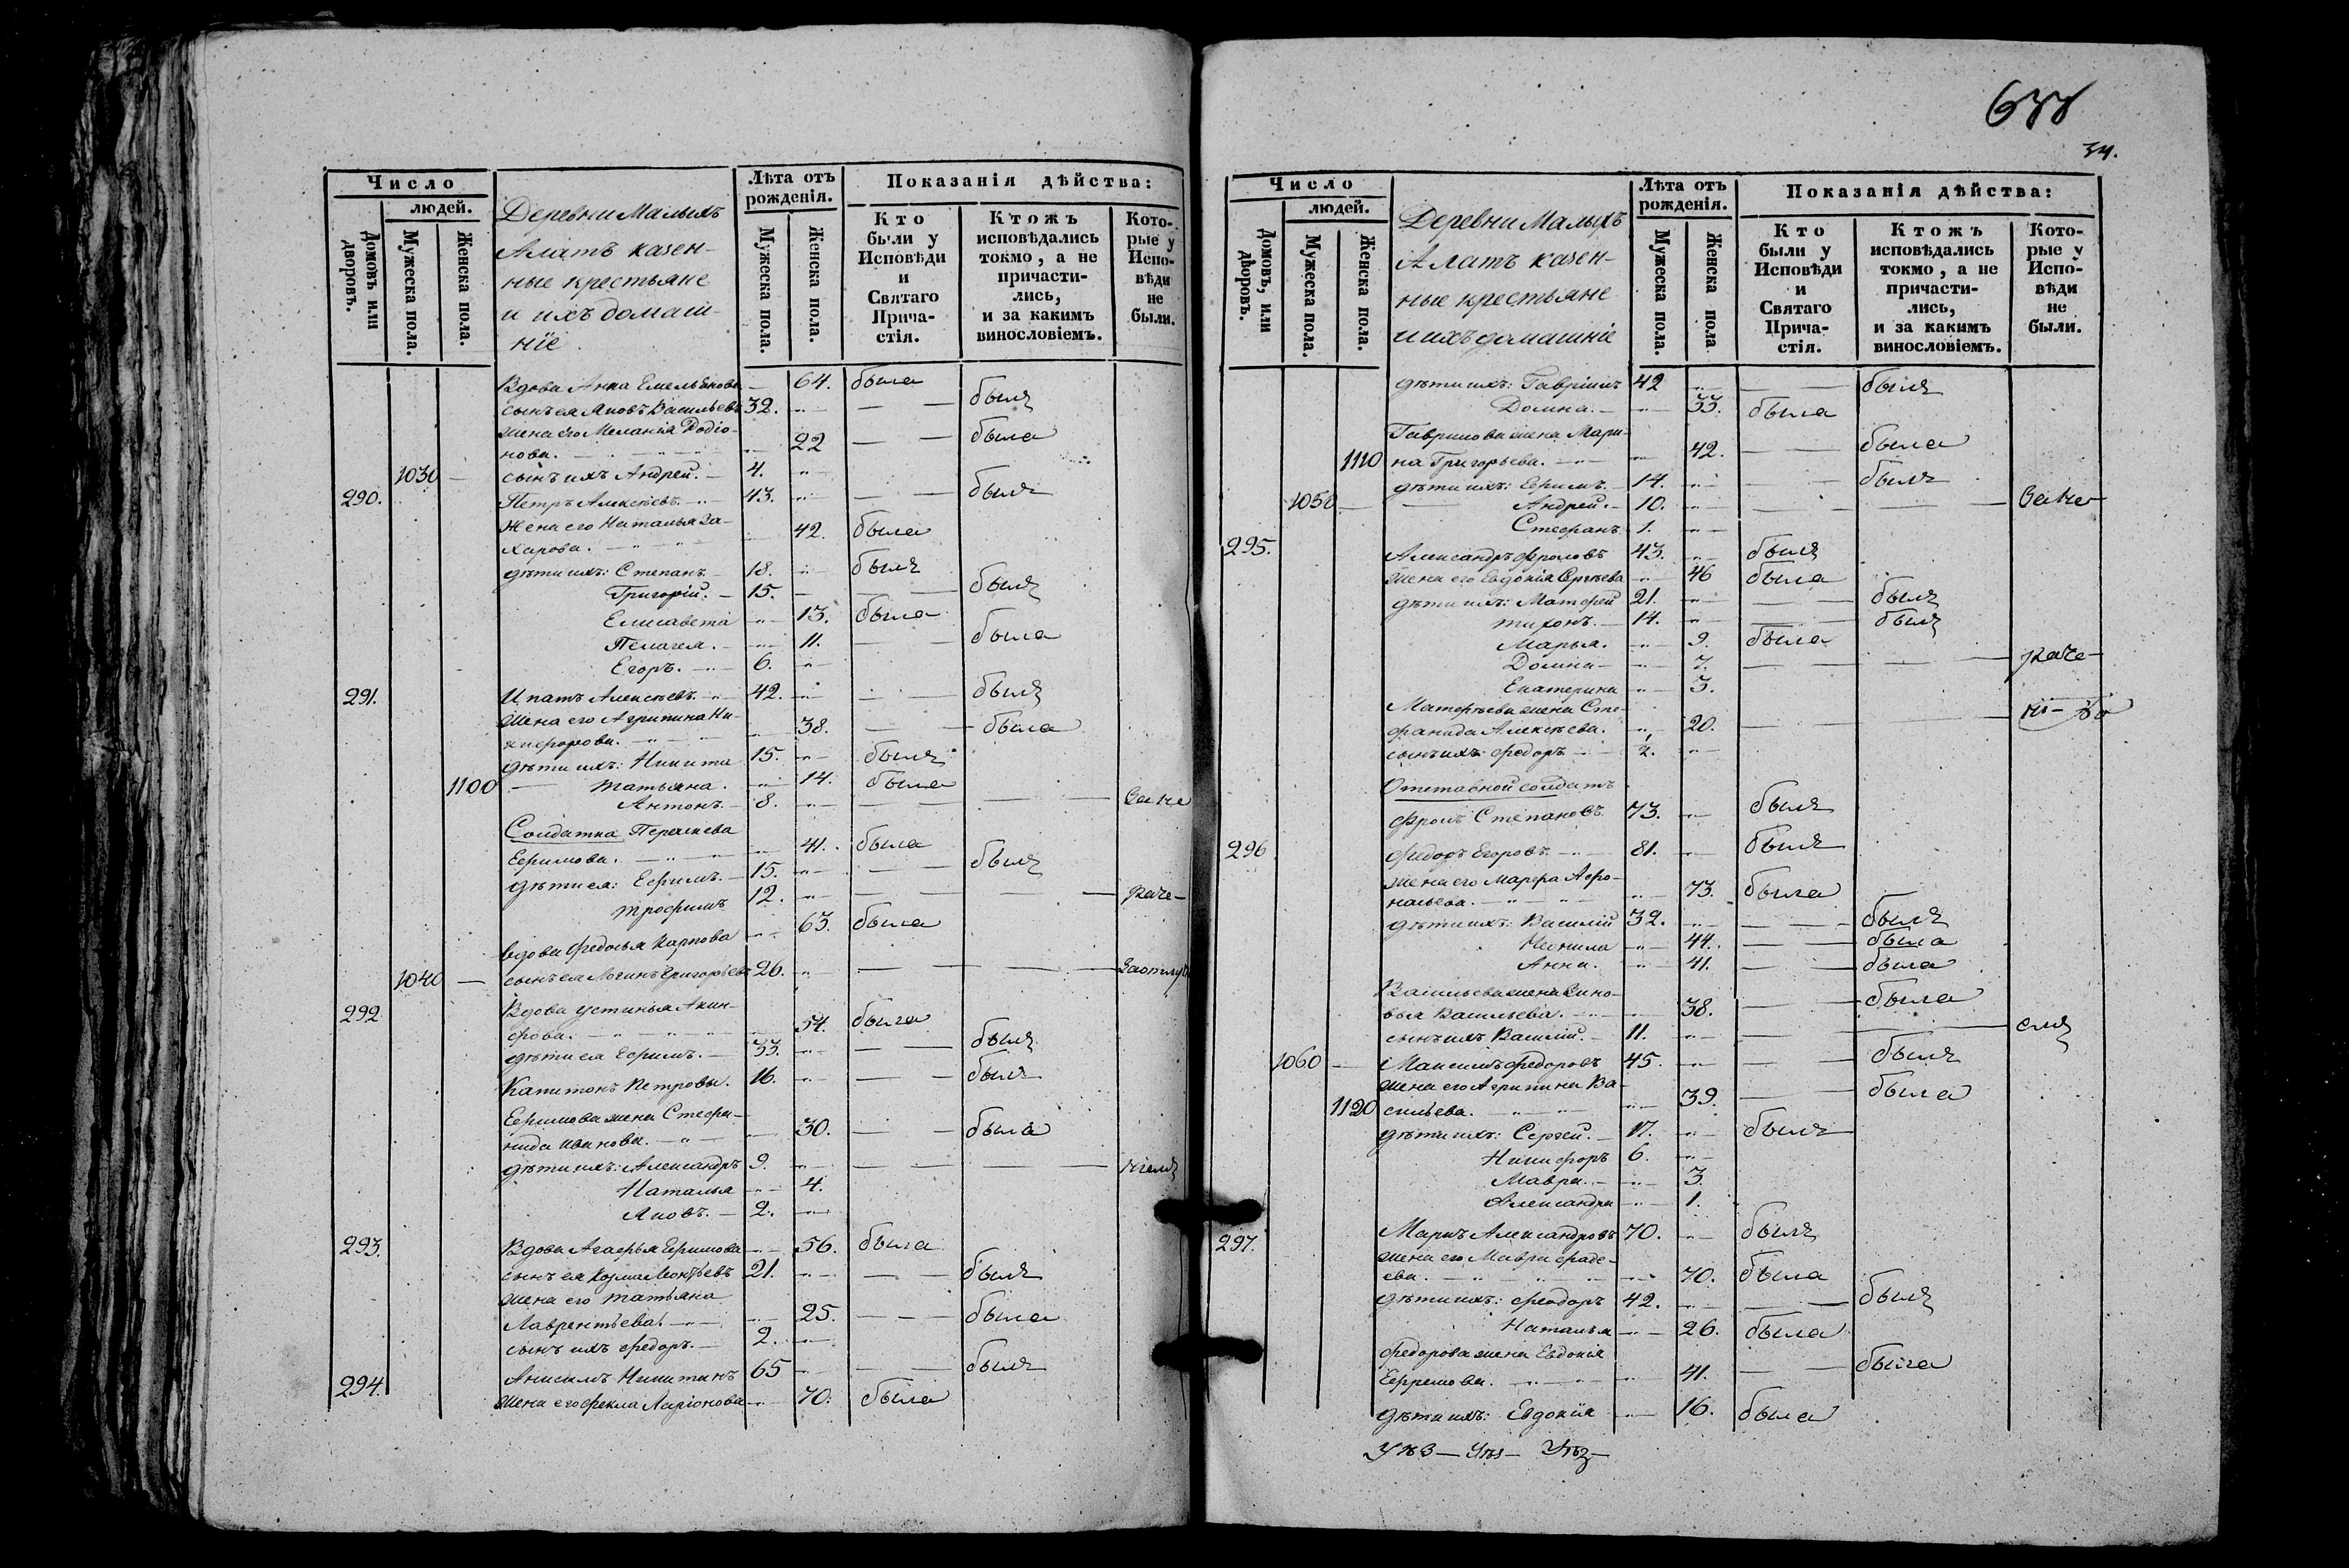 Число
людей.
Домовъ или дворовъ.
Мужеска пола.
Женска пола.
Деревни Малыхъ
Алатъ казен-
ные крестьяне
и ихъ домаш-
ніе
Лѣта отъ рожденія.
Мужеска пола.
Женска пола.
Показанія дѣйства:
Кто были у Исповѣди и Святаго Прича-стія.
Ктожъ исповѣдались токмо, а не причасти-лись, и за какимъ винословіемъ.
Кото-рые у Испо-вѣди не были.
Вдова Анна Емельянова — 64. была
сынъ ея Яковъ Васильевъ 32. — былъ
жена его Меланія Родіо-
нова. — 22 — была
1030 — сынъ ихъ Андрей. — 4.
290. Петръ Алексѣевъ. 43. — былъ
Жена его Наталья За-
харова. — 42. была
дѣти ихъ: Степанъ 18. былъ
Григорій. — 15. — былъ
Елисавета — 13. была
Пелагея. — 11. — была
Егоръ. — 6.
291. Ипатъ Алексѣевъ. 42. — былъ
жена его Агрипина Ни-
кифорова. — 38. — была
дѣти ихъ: Никита 15. былъ
1100 — Татьяна. — 14. была
Антонъ. — 8. —
Солдатка
Ефимова. — 41. была
дѣти ея: Ефимъ. — 15. — былъ
Трофимъ 12. —
вдова Федосья Карпова — 63. была
1040 — сынъ ея Логинъ Григорьевъ 26. —
292. Вдова Устинья Акин-
фова. — 54. была
дѣти ея Ефимъ. — 33. — былъ
Капитонъ Петровы. 16. — былъ
Ефимова жена Стефа-
нида Иванова. — 30. — была
дѣти ихъ: Александръ 9. —
Наталья — 4.
Яковъ. — 2.
293. Вдова Агафья Ефимова — 56. была
сынъ ея Козма Леонтьевъ 21. — былъ
жена его Татьяна
Лаврентьева. — 25. — была
сынъ ихъ Федоръ. — 2.
294. Анисимъ Никитинъ 65 — былъ
жена его Фекла Ларіонова — 70. была
34.
Число
людей.
Домовъ, или дворовъ.
Мужеска пола.
Женска пола.
Деревни Малыхъ
Алатъ казен-
ные крестьяне
и ихъ домашніе
Лѣта отъ рожденія.
Мужеска пола.
Женска пола
Показанія дѣйства:
Кто были у Исповѣди и Святаго Прича-стія.
Ктожъ исповѣдались токмо, а не причасти-лись, и за какимъ винословіемъ.
Кото-рые у Испо-вѣди не были.
дѣти ихъ: Гавріилъ 42 — былъ
Домна. — 33. была
Гаврилова жена Мари-
1110 на Григорьева. — 42. — была
дѣти ихъ: Ефимъ. — 14. — былъ
1050 — Андрей. — 10. —
Стефанъ 1.
295. Александръ Фроловъ 43. былъ
жена его Евдокія Сергѣева — 46 была
дѣти ихъ: Матфей 21. — былъ
Тихонъ. — 14. — былъ
Марья. — 9. была
Домна — 7. —
Екатерина — 3.
Матфѣева жена Сте-
фанида Алексѣева. — 20. —
сынъ ихъ Федоръ
Отставной солдатъ
Фролъ Степановъ 73. былъ
296 Федоръ Егоровъ. — 81. былъ
жена его Марфа Афо-
насьева. — 73. была
дѣти ихъ: Василій 32. — былъ
Неонила — 44. — была
Анна. — 41. — была
Васильева жена Зино-
вья Васильева. — 38. — была
сынъ ихъ Василій. — 11. —
1060 — Максимъ Федоровъ 45. — былъ
жена его Агрипина Ва-
1120 сильева. — 39. — была
дѣти ихъ: Сергѣй. — 17. былъ
Никифоръ 6.
Мавра. — 3.
Александра — 1.
297. Маркъ Александровъ 70. былъ
жена его Мавра Фаде-
ева. — 70. была
дѣти ихъ: Феодоръ 42. — былъ
Наталья — 26. была
Федорова жена Евдокія
Ефремова. — 41. — была
дѣти ихъ: Евдокія — 16. была